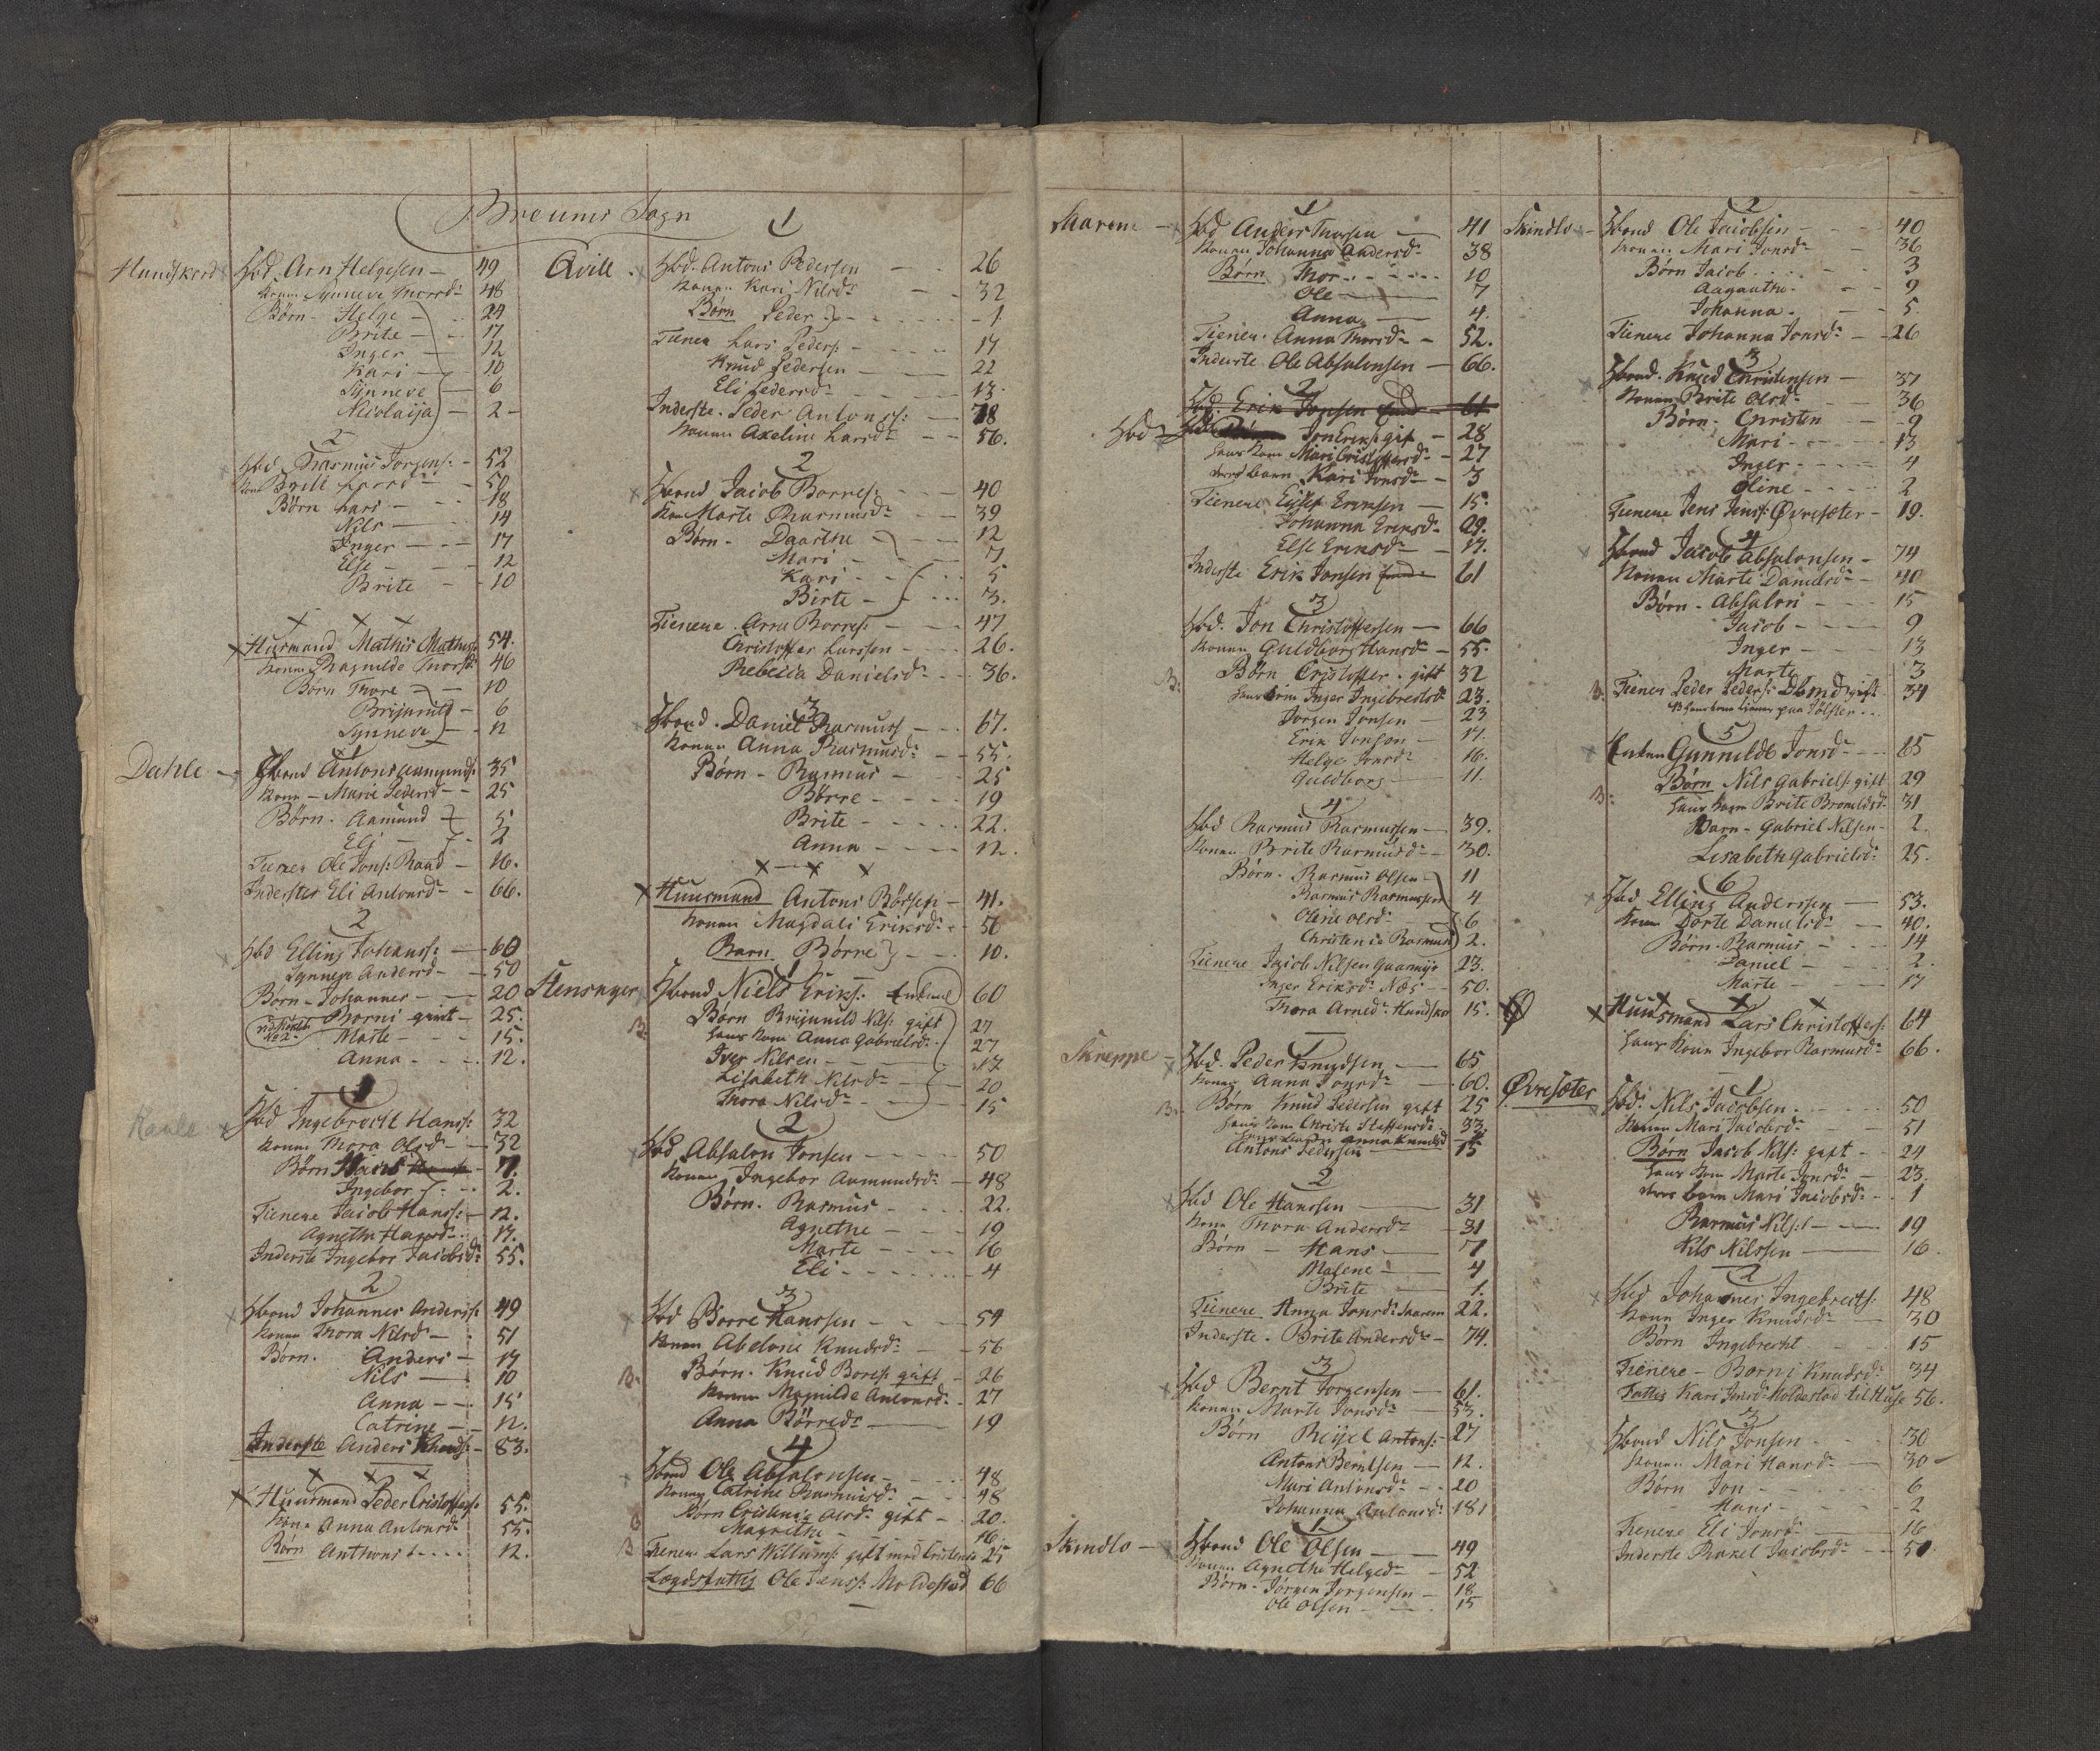 Breums Sogn
Hundskord Hbd. Arn Helgesen — 49
Konen Synneve Thorsdr 48
Børn - Helge — 24
Brite — 17
Inger — 12
Kari — 10
Synneve — 6
Nicolaija — 2
2
Hbd Rasmus Jorgens: — 52
Kone Brite Larsdr — 50
Børn Lars — 18
Nils — 14
Inger — 17
Else — 12
Brite — 10
x x x
x Husmand Mathis Mathis: 54.
Konen Ragnilde Thorsdr 46
Børn Thore — 10
Brijnnild — 6
Synneve — 2
1
Dahle — Hbond Antons Aamunds: 35
Kone — Marie Pedersd — 25
Børn. Aamund — 5
Eli — 2
Tiener Ole Jons: Raad — 16.
Inderster Eli Antonsdr — 66.
2
Hbd Elling Johanss: — 60
Synneve Andersd — 50
Børn - Johannes — 20
Borni givt — 25.
Marte — 15.
Anna — 12.
1
Hbd Ingebrecht Hans: 32
Konen Thora Olsdr — 32
Børn Hans — 7.
Ingebor — 2.
Tienere Jacob Hans: — 12.
Agnethe Hansdr — 17.
Inderste Ingebor Jacobsdr 55.
2
Hbond Johannes Anders: 49
Konen Thora Nilsdr — 51
Børn. Anders — 17
Nils — 10
Anna — 15
Catrine — 12.
Inderste Anders Knuds: — 83.
x x x
x Huusmand Peder Cristoffers: 55.
Kone Anna Antonsdr 55.
Børn Anthoni — 12.
1
Aville Hbd. Antons Pedersen — 26
Konen Kari Nilsdr — 32
Børn Peder — 1
Tiener Lars Peders: — 17
Knud Pedersen — 22
Eli Pedersdr — 13.
Inderste. Peder Antons: — 78
Konen Axeline Larsdr — 56.
2
Hbond Jacob Børres: — 40
Kone Marte Rasmusdr — 39
Børn - Daarthe — 12
Mari — 7
Kari — 5
Birte — 3.
Tienere. Arne Børres: — 47
Christoffer Larssen — 26.
Rebecca Danielsdr — 36.
3
Hbond. Daniel Rasmuss — 67.
Konen Anna Rasmusdr — 55.
Børn - Rasmus — 25
Børre — 19
Brite — 22.
Anna — 12.
x x x
x Huusmand Antons Børsen — 41.
Konen Magdali Eriksdr — 50
Barn Børre — 10.
1
Stensager Hbond Niels Eriks: Enkem 60
B. Børn Brijnnild Nils: gift 27
hans Kone Anna Gabrielsdr. 27
Iver Nilsen — 17
Lisabeth Nilsdr — 20
Thora Nilsdr — 15
2
Hbd Absalon Jonsen — 50
Konen Ingebor Aamundsdr — 48
Børn. Rasmus — 22.
Agnethe — 19
Marte — 16
Eli — 4
3
Hbd Børre Hanssen — 54
Konen Abelone Knudsdr — 56
B. Børn. Knud Børes: gift — 26
Konen Magnilde Antonsdr — 27
Anna Børredr — 19
4
Hbond Ole Absalonsen — 48
Konen Catrine Rasmusdr — 48
Børn Cristense Olsdr gift — 20.
Magrethe — 16.
B Tiener Lars Willums: gift med Cristense 25
Lægdsfattig Ole Jenss: Moldestad 66
1
Skarene — Hbd Anders Thorsen — 41
Konen Johanna Andersdr 38
Børn Thor — 10
Ole — 7
Anna — 4.
Tiener. Anna Thorsdr — 52.
Inderste Ole Absalonsen — 66.
2
Hbd. Erik Jonsen — 61
Hbd Jon Eriks: gift — 28
hans Kone Mari Cristoffersdr — 27
deres barn Kari Jonsdr — 3
Tienere Ellef Eriksen — 15.
Johanna Eriksdr 29.
Else Eriksdr — 17.
Inderste Erik Jonsen 61
3
Hbd. Jon Christoffersen — 66
Konen Guldborg Hansdr — 55.
B. Børn Cristoffer. gift 32
hans Kone Inger Ingebretsdr 23.
Jorgen Jonsen — 23
Erik Jonson — 17.
Helge Jonsdr 16.
Guldborg 11.
4
Hbd Rasmus Rasmussen — 39.
Konen Brite Rasmusdr — 30.
Børn. Rasmus Olsen 11
Rasmus Rasmussen 4
Oline Olsdr 6
Christense Rasmusd 2.
Tienere Jacob Nilsen Gaamyr 23.
Inger Eriksdr Næs — 50.
Thora Arnedr Hundskor 15.
1
Skreppe — Hbd. Peder Knudsen — 65
Konen Anna Jonsdr — 60.
B. Børn Knud Pedersen gift 25
hans Kone Christi Steffensdr 33.
Antons Pedersen — 15
2
Hbd Ole Hanssen — 31
Kone Thora Andersdr — 31
Børn — Hans — 7
Malene — 4
Brite — 1.
Tienere Anna Jonsdr Skaren 22.
Inderste. Brite Andersdr — 74.
3
Hbd Bernt Jorgensen — 61.
Konen Marte Jonsdr — 53.
Børn Reijel Antons: — 27
Antons Berntsen — 12.
Mari Antonsdr — 20
Johanna Antonsdr 18
1
Skindlo — Hbond Ole Olsen — 49
Konen Agnethe Helgedr — 52
Børn - Jörgen Jorgensen — 18
Ole Olsen — 15
2
Skindlo — Hbond Ole Jacobsen — 40
Konen Mari Jonsdr — 36
Børn Jacob — 3
Aagaathe — 9
Johanna — 5
Tienere Johanna Jonsdr — 26
3
Hbond. Knud Christensen — 37
Konen Brite Olsdr — 36
Børn. Christen — 9
Mari — 13
Inger — 4
Oline — 2
Tienere Jens Jens: Øvresæter — 19.
4
Hbond Jacob Absalonsen — 74
Konen Marte Danielsdr — 40
Børn - Absalon — 15
Jacob — 9
Inger — 13
Marte — 3
B. Tiener Peder Peders: gift 34
5
Enken Gunnilde Jonsdr — 65
Børn Nils Gabriels: gift 29
B: hans Kone Brite Bromelsdr 31
Barn - Gabriel Nilsen — 2.
Lisabeth Gabrielsdr 25.
6
Hbd Elling Anderssen — 53.
Konen Dorte Danielsdr — 40.
Børn. Rasmus — 14
Daniel — 2.
Marte — 17
x x x
x Huusmand Lars Christoffers: 64
hans Kone Ingebor Rasmusdr 66.
1
Øvresæter Hbd. Nils Jacobsen. 50
Konen Mari Jacobsdr 51
Børn Jacob Nils: gift — 24
hans Kone Marte Jonsdr — 23.
deres barn Mari Jacobsdr — 1
Rasmus Nils: — 19
Nils Nilssen — 16.
2
Hbd Johannes Ingebrects: 48
Konen Inger Knudsdr — 30
Børn Ingebrecht — 15
Tienere — Borni Knudsdr 34
Fattig Kari Jonsdr Moldestad til Huse 56.
3
Hbond Nils Jonsen — 30
Konen Mari Hansdr — 30
Børn Jon — 6
Hans — 2
Tienere Eli Jonsdr — 16
Inderste Rakel Jacobsdr — 50